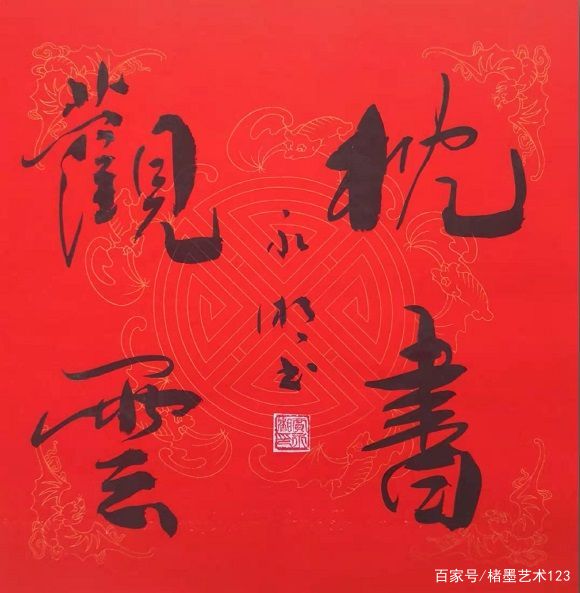 枕書
觀雲
永湘书
百家号/楮墨艺术123